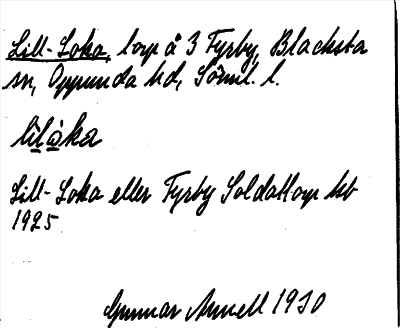 Lill-Loka, torp å 3 Fyrby, Blacksta
sn, Oppunda hd, Söml. l.
lilòka
Lill-Loka eller Fyrby Soldattorp hb
1925
Gunnar Arnell 1930